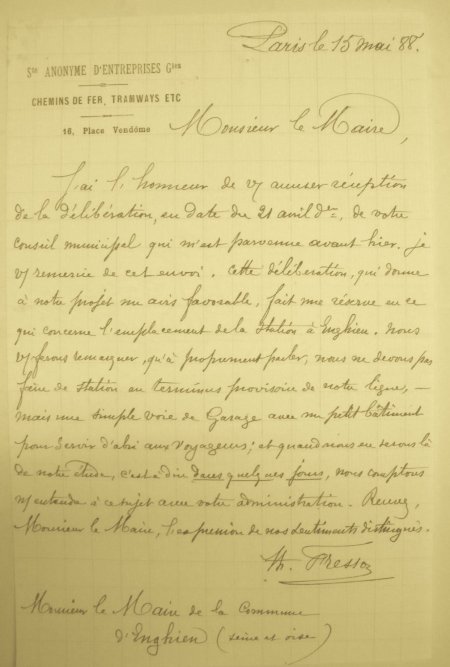 Paris le 15 mai 88.
Sté ANONYME D'ENTREPRISES Gles
CHEMINS DE FER, TRAMWAYS ETC
16, Place Vendôme
Monsieur le Maire,
J'ai l'honneur de vs accuser réception
de la délibération, en date du 21 avril der, de votre
Conseil municipal qui m'est parvenue avant-hier. je
vs remercie de cet envoi. Cette délibération, qui donne
à notre projet un avis favorable, fait une réserve en ce
qui concerne l'emplacement de la station à Enghien. Nous
vs ferons remarquer, qu'à proprement parler, nous ne devons pas
faire de station au terminus provisoire de notre ligne, —
mais une simple voie de Garage avec un petit bâtiment
pour servir d'abri aux voyageurs; et quand nous en serons là
de notre étude, c'est à dire dans quelques jours, nous comptons
ns entendre à ce sujet avec votre administration. Recevez,
Monsieur le Maire, l'expression de nos sentiments distingués.
Th. Fresson
Monsieur le Maire de la Commune
d'Enghien (seine et oise)